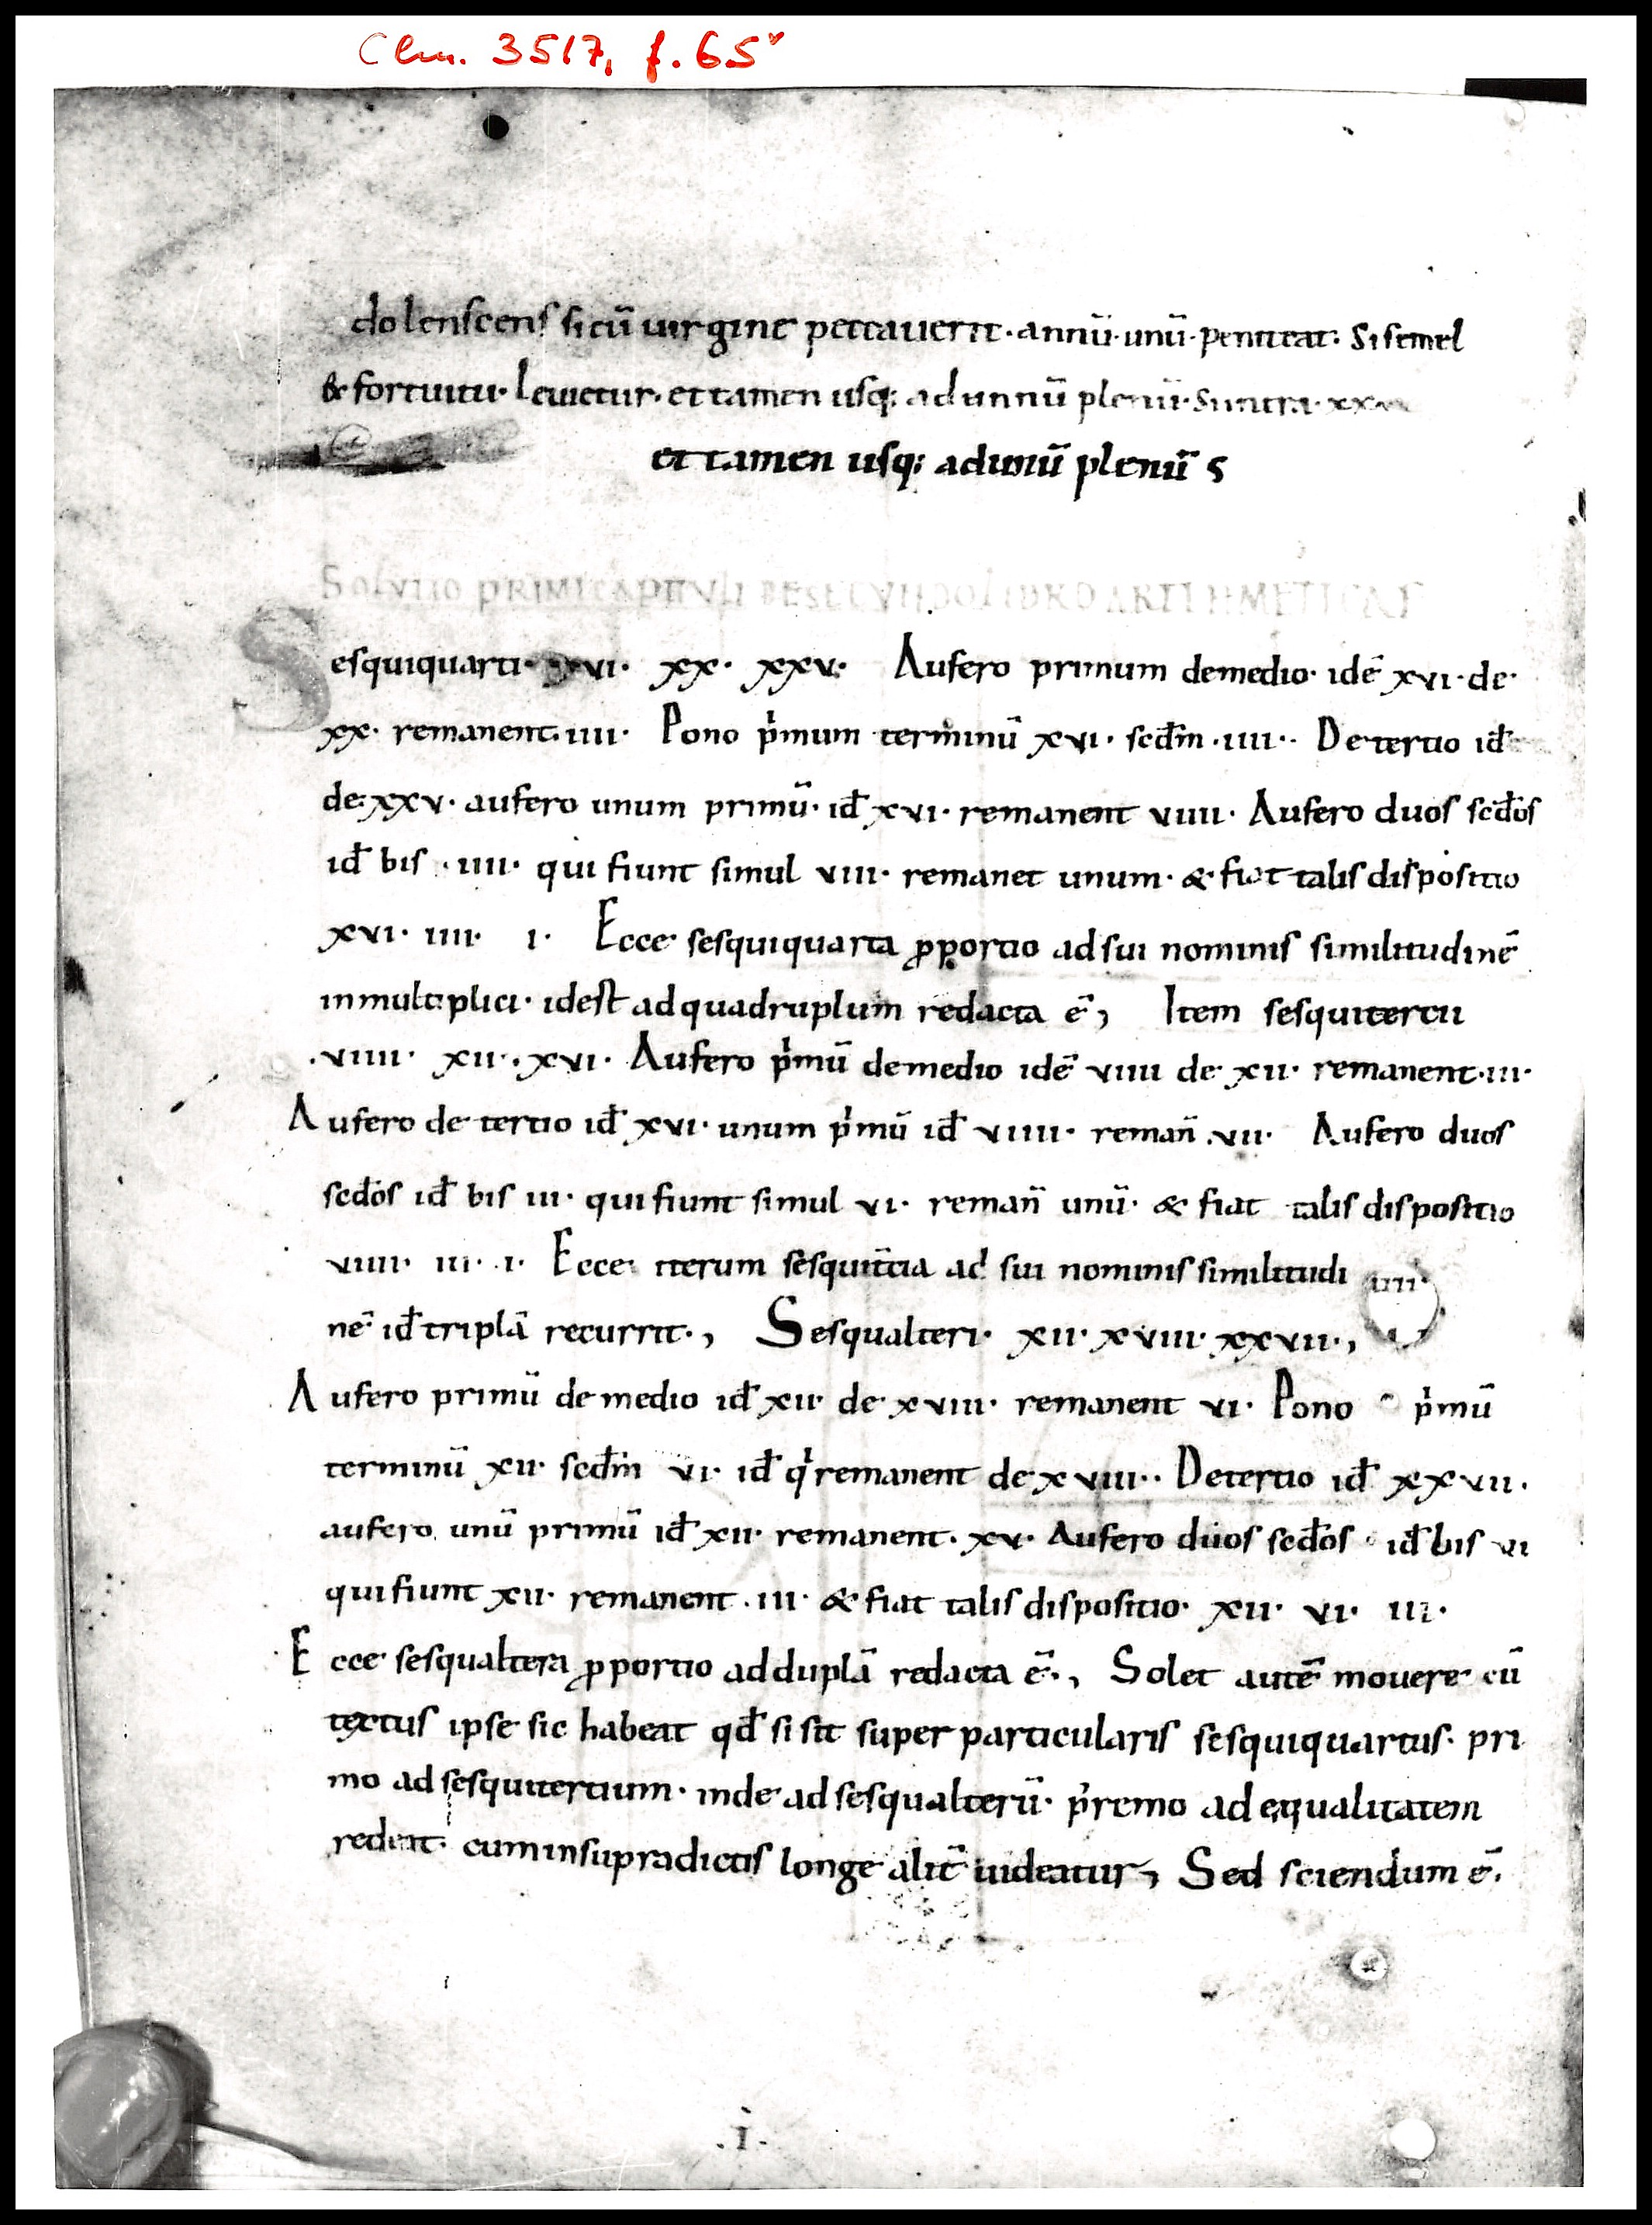 Clm. 3517, f. 65v
dolenscens si cū uirgine peccauerit· annū· unū· peniteat· Si semel
& fortuitu· leuietur· et tamen usq; ad unnū plenū· Si intra· xx
et tamen usq; ad unū plenū s
SOLVTIO PRIMI CAPITVLI DE SECVNDO LIBRO ARITHMETICAE
Sesquiquarti· xvi· xx· xxv· Aufero primum de medio· idē xvi· de·
xx· remanent· iiii· Pono p'mum terminū xvi· scđm ·iiii·· De tertio iđ
de· xxv· aufero unum primū· iđ xvi· remanent viiii· Aufero duos scđos
iđ bis ·iiii· qui fiunt simul viii· remanet unum· & fiat talis dispositio
xvi· iiii· i· Ecce sesquiquarta ꝓportio ad sui nominis similitudinē
in multiplici· idest ad quadruplum redacta ē, Item sesquitertii
·viiii· xii·· xvi· Aufero p'mū de medio idē viiii de xii· remanent· iii·
Aufero de tertio iđ xvi· unum p'mū iđ viiii· remañ ·vii· Aufero duos
scđos iđ bis iii· qui fiunt simul vi· remañ unū· & fiat talis dispositio
viiii· iii· i· Ecce iterum sesquit̄cia ad sui nominis similitudi
iiii·
nē iđ triplā recurrit·, Sesqualteri· xii· xviii· xxvii·,
Aufero primū de medio iđ xii· de xviii· remanent vi· Pono p'mū
terminū xii· scđm vi· iđ q' remanent de xviii·· De tertio iđ xxvii·
aufero unū primū iđ xii· remanent· xv· Aufero duos scđos iđ bis vi
qui fiunt xii· remanent ·iii· & fiat talis dispositio· xii· vi· iii·
Ecce sesqualtera ꝓportio ad duplā redacta ē·, Solet autē mouere cū
textus ipse sic habeat qđ si sit super particularis sesquiquartus· pri
mo ad sesquitertium· inde ad sesqualterū· p'remo ad ęqualitatem
redeat· cum in supradictis longe alit̄ uideatur, Sed sciendum ē·
·i·